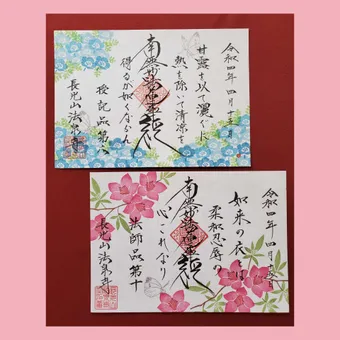 令和四年 四月十三日
甘露を以て灑ぐに
熱を除いて清涼を
南無妙法蓮華経
得るが如くならん
授記品第六
長光山 法泉寺
令和四年 四月
如来の衣とは
柔和忍辱の
南無妙法蓮華経
心これなり
法師品第十
長光山 法泉寺